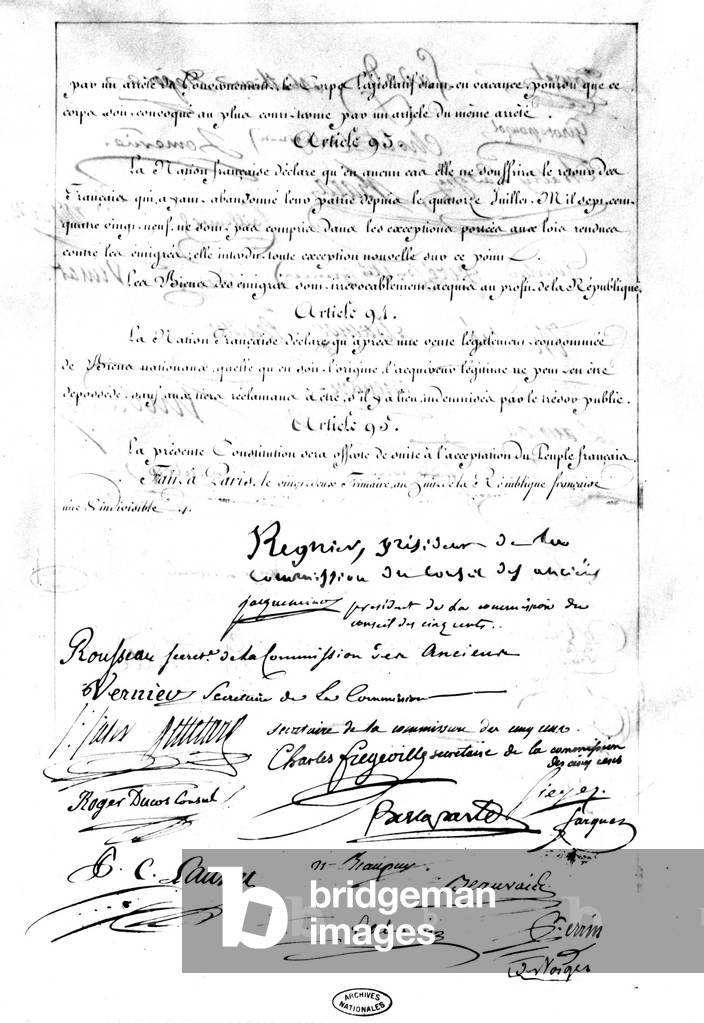 par un arrêté du Gouvernement, le Corps Législatif étant en vacance, pourvu que ce
corps soit convoqué au plus court terme par un article du même arrêté.
Article 93.
La Nation française déclare qu'en aucun cas elle ne souffrira le retour des
Français qui, ayant abandonné leur patrie depuis le quatorze Juillet Mil sept cent
quatre vingt neuf, ne sont pas compris dans les exceptions portées aux lois rendues
contre les émigrés; elle interdit toute exception nouvelle sur ce point.
Les Biens des émigrés sont irrévocablement acquis au profit de la République.
Article 94.
La Nation Française déclare qu'après une vente légalement consommée
de Biens nationaux, quelle qu'en soit l'origine, l'acquéreur légitime ne peut en être
depossédé, sauf aux tiers réclamans à être, s'il y a lieu, indemnisés par le trésor public.
Article 95.
La présente Constitution sera offerte de suite à l'acceptation du Peuple français.
Fait à Paris, le vingt deux Frimaire an huit de la République française
une & indivisible
Regnier, président de la
Commission du Conseil des anciens
Jacqueminot président de la commission du
conseil des cinq cents.
Rousseau secret.e de la Commission des Anciens
Vernier Secrétaire de La Commission
secretaire de la commission des cinq cens.
Charles Fregeville secrétaire de la commission
des cinq cens
Roger Ducos Consul
Bonaparte
Sieyes
fargues
P. C. Laussat
n. Beaupuy.
Beauvais
Perrin
ARCHIVES
NATIONALES
b bridgeman
images